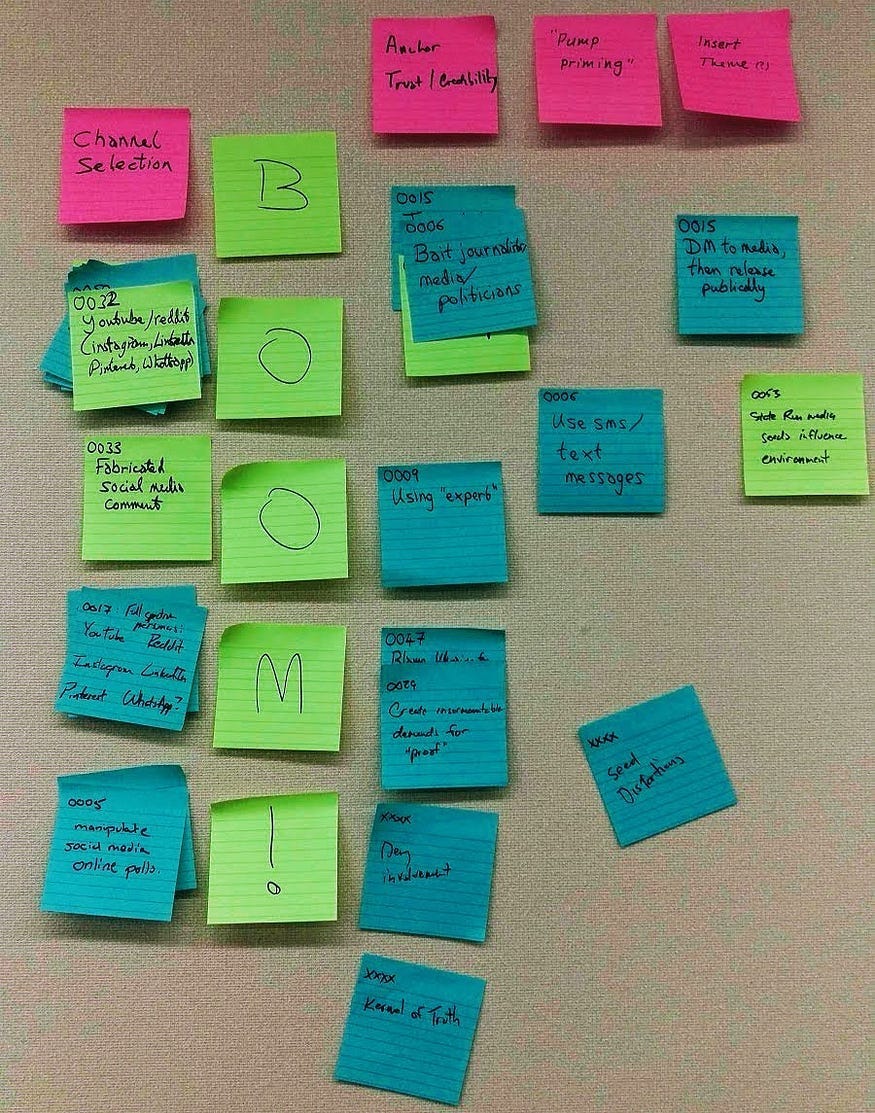 Anchor
Trust / Credibility
"Pump
priming"
Insert
Theme (?)
Channel
Selection
B
0015
0006
Bait journalists/
media/
politicians
0015
DM to media,
then release
publically
0032
Youtube/reddit
(instagram, LinkedIn
Pinterest, WhatsApp)
O
0006
Use sms/
text
messages
0053
State Run media
seeds influence
environment
0033
Fabricated
social media
comment
O
0009
Using "experts"
0017: Full spectrum
personas:
Youtube Reddit
Instagram LinkedIn
Pinterest WhatsApp?
M
0047
0029
Create insurmountable
demands for
"proof"
xxxx
Seed
Distortions
0005
manipulate
social media
online polls.
!
xxxx
Deny
involvement
xxxx
Kernel of Truth